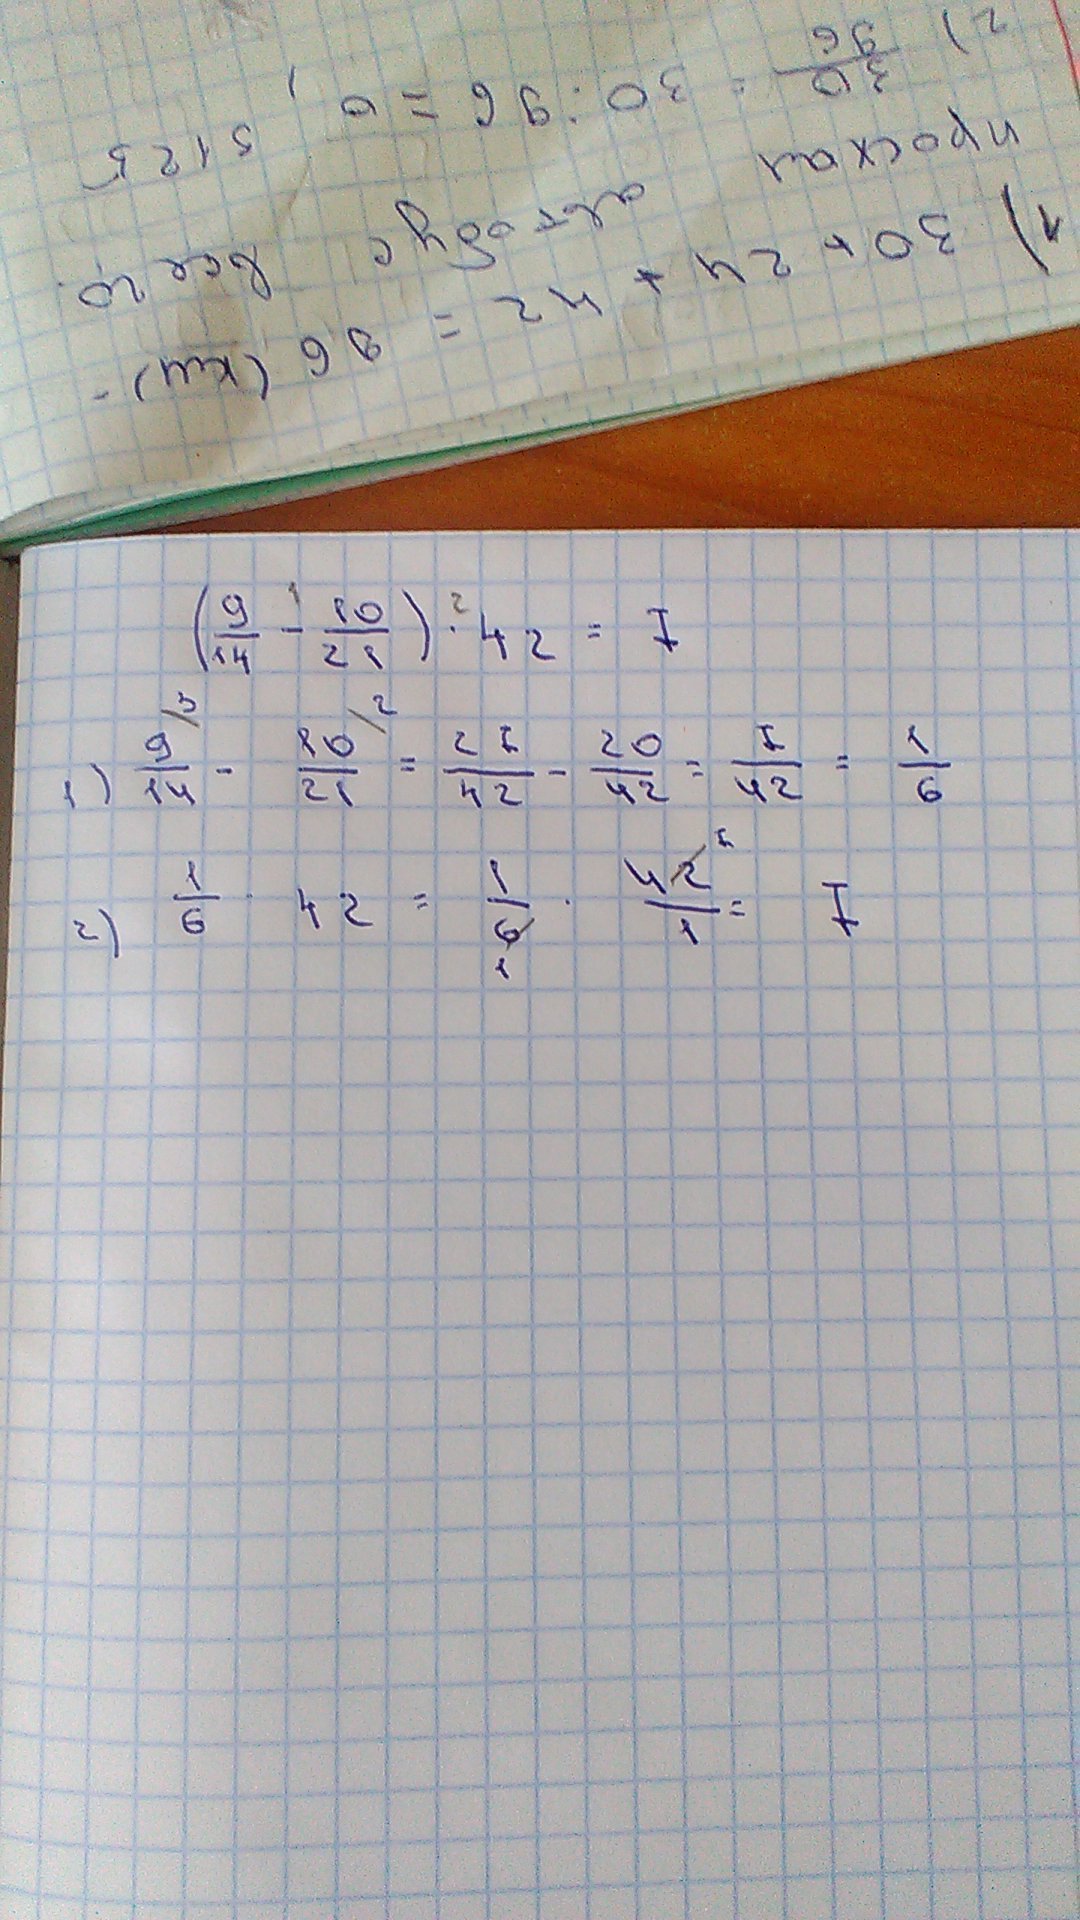 1) 30 + 24 + 42 = 96 (км) -
проехал автобус всего.
2) 30/96 = 30 : 96 = 0,3125
(9/14 - 10/21) · 42 = 7
1) 9/14 - 10/21 = 27/42 - 20/42 = 7/42 = 1/6
2) 1/6 · 42 = 1/6 · 42/1 = 7